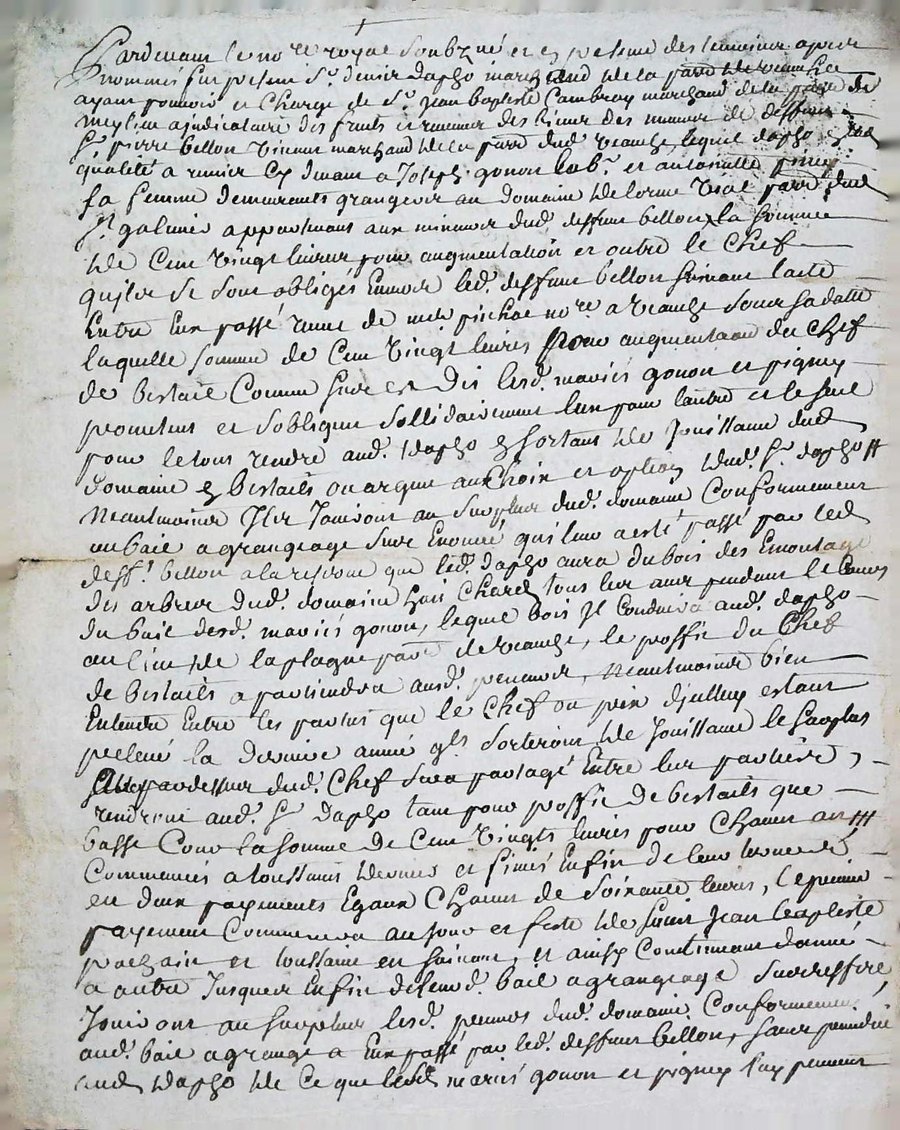 Pardevant le no.re royal soubz.né et en presence des temoins apres
nommés fut present S.r denis dapzo marchand de la parr.
ayant pouvoir et charge de S.r Jean baptiste Cambray marchand de la parr. de
meylieu ajudicataire des fruits et revenus des biens des mineurs de deffunt
S.r pierre bellon vivant marchand de la parr. dud. lequel dapzo
qualité a remis cy devant a Joseph gonon lab.r et antoinette
sa femme demeurants grangers au domaine de lorme parr. dud.
S.t galmier appartenans aux mineurs dud. deffunt bellon, la somme
de Cent vingt livres pour augmentation et outre le Chef
quils se sont obligés Envers led. deffunt bellon suivant lacte
Entre Eux passé no.re a sous sa datte
laquelle somme de Cent vingt livres pour augmentation du Chef
de bestail Comme sus est dit lesd. mariés gonon et pigney
promettent et sobligent sollidairement lun pour lautre et le seul
pour le tout rendre aud. dapzo sortans de jouissance dud.
domaine bestails ou argent au choix et option dud. S.r dapzo //
neantmoins Ils Jouiront au surplus dud. domaine Conformement
au bail a grangeage sus Enoncé qui leur a esté passé par led.
deff.t bellon a la reserve que led. dapzo aura du bois des Emontage
des arbres dud. domaine chard tous les ans pendant le Cours
du bail desd. mariés gonon, lequel bois Il Conduira aud. dapzo
au lieu de la plagne parr. de, le proffit du Chef
de bestails apartiendra ausd. preneurs, neantmoins bien
Entendu Entre les parties que le Chef ou prix dJcelluy estant
prelevé la derniere année qls sortiront de Jouissance le surplus
pardessus dud. Chef sera partagé Entre les parties,
rendront aud. S.r dapzo tant pour proffit de bestails que
basse Cour la somme de Cent vingts livres pour Chacun an ///
Commencés a toussaints dernier et finis Enfin de leur
en deux payements Egaux Chacun de Soixante livres, le premier
payement Commencera au jour et feste de Saint Jean baptiste
prochain et toussaint en suivant, et ainsy Continuant danné
a autre Jusques Enfin de leurd. bail a grangeage
Jouiront au surplus lesd. preneurs dud. domaine Conformement
aud. bail a grange a Eux passé par led. deffunt bellon, sans
aud. dapzo de Ce que lesd. mariés gonon et pigney